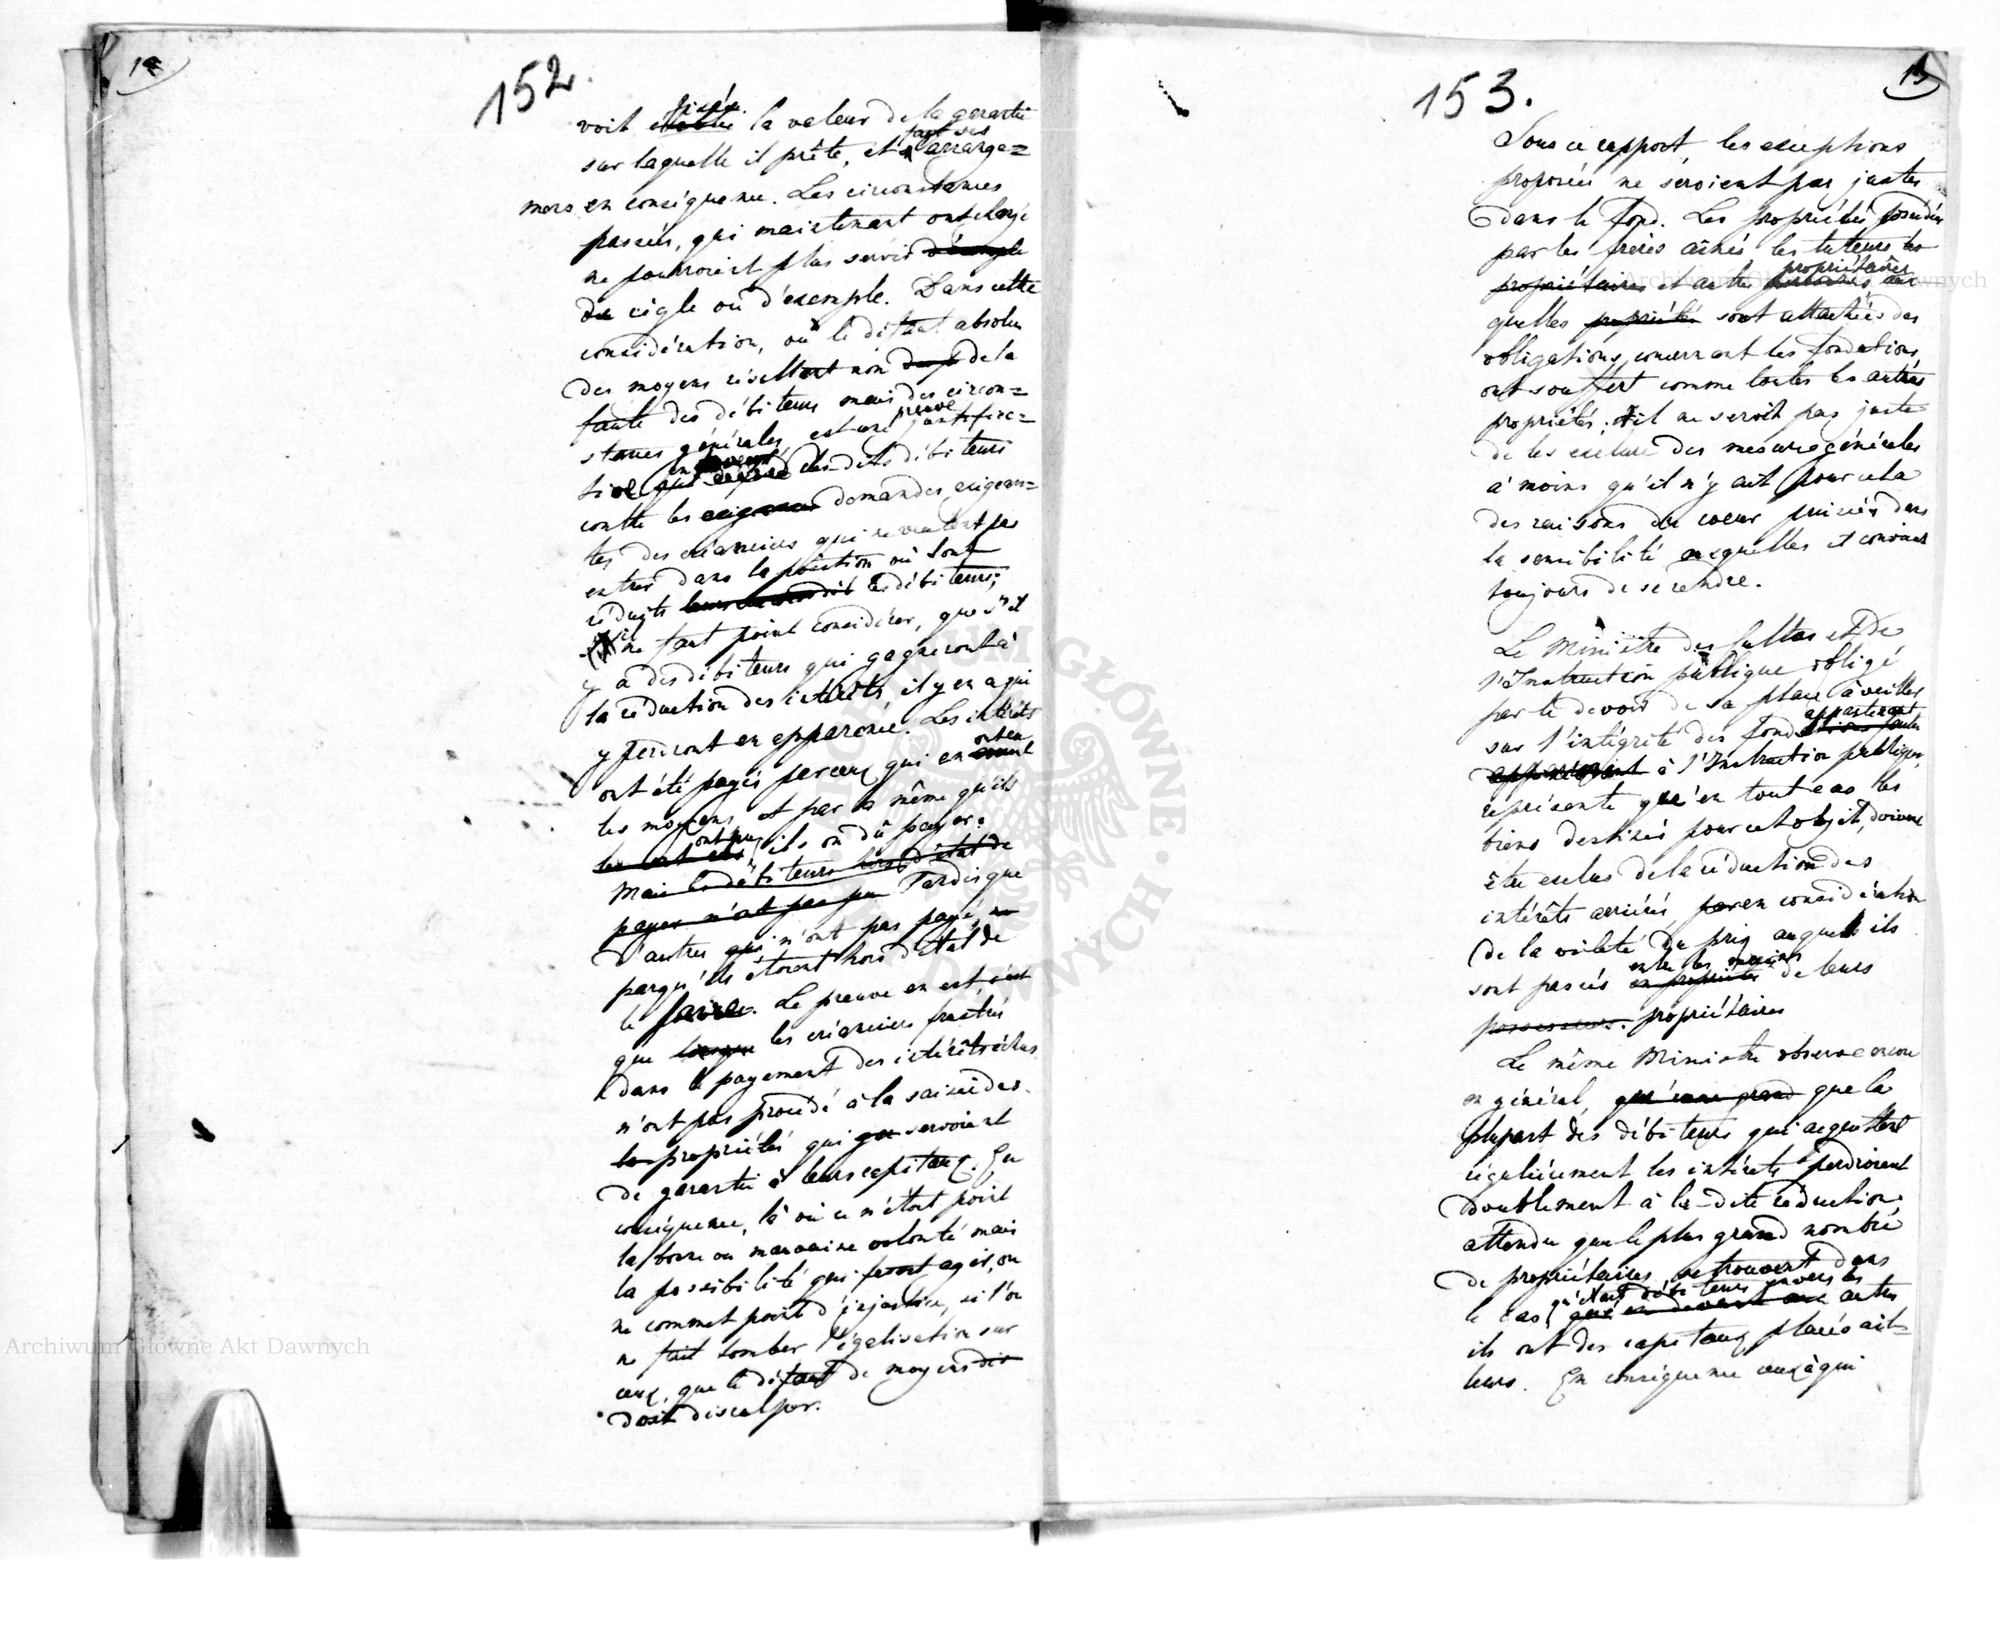 152.
voit fixée la valeur de la garantie
sur laquelle il prête, et fait ses arrange=
mens en conséquence. Les circonstances
passées, qui maintenant ont changé
ne pourroient plus servir d'exemple
de règle ou d'exemple. Dans cette
considération, où le défaut absolu
des moyens résultant non de la
faute des débiteurs mais des circon=
stances générales, est une preuve justifica=
tive en faveur des dits débiteurs
contre les demandes exigean=
tes des créanciers qui ne veulent pas
entrer dans la position où sont
réduits les débiteurs;
il ne faut point considérer, que s'il
y a des débiteurs qui gagneront à
la réduction des intérêts, il y en a qui
y perdront en apparence. Les intérêts
ont été payés par ceux qui en ont eu
les moyens et par là même qu'ils
ont pu, ils ont dû payer.
Mais les débiteurs hors d'état de
payer n'ont pas pu Tandis que
d'autres qui n'ont pas payé,
parcequ'ils étoient hors d'état de
le faire. La preuve en est, c'est
que les créanciers frustrés
dans le payement des intérêts échus
n'ont pas procédé à la saisie des
propriétés qui servoient
de garantie à leurs capitaux. En
conséquence, là où ce n'étoit point
la bonne ou mauvaise volonté mais
la possibilité qui agir, on
ne commet point d'injustice, si l'on
ne fait tomber l'égalisation sur
ceux, que le défaut de moyens
doit disculper.
153.
13
Sous ce rapport, les exceptions
proposées ne seroient pas justes
dans le fond. Les propriétés possédées
par les frères aînés les tuteurs les
propriétaires et autres propriétaires aux
quelles propriétés sont attachées des
obligations concernant les fondations,
ont souffert comme toutes les autres
propriétés; il ne seroit pas juste
de les exclure des mesures générales
à moins qu'il n'y ait pour cela
des raisons du coeur puisées dans
la sensibilité auxquelles il convient
toujours de se rendre.
Le Ministre des Cultes et de
l'Instruction publique obligé
par le devoir de sa place à veiller
sur l'intégrité des fonds appartenant
à l'Instruction publique,
représente qu'en tout cas les
biens destinés pour cet objet, doivent
être exclus de la réduction des
intérêts arriérés, en considération
de la vileté du prix auquel ils
sont passés entre les mains de leurs
possesseurs. propriétaires
Le même Ministre observe encore
en général, que la
plupart des débiteurs qui acquittent
régulièrement les intérêts perdroient
doublement à la-dite réduction;
attendu que le plus grand nombre
de propriétaires se trouvent dans
le cas qu'étant débiteurs envers les autres
ils ont des capitaux placés ail=
leurs. En conséquence ceux à qui
Archiwum Główne Akt Dawnych